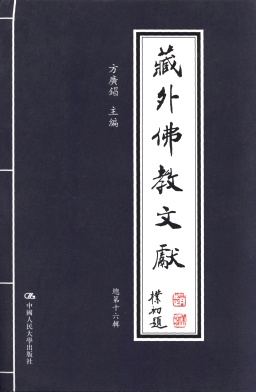 藏外佛教文獻
樸初題
方廣錩 主編
總第十六輯
中國人民大學出版社